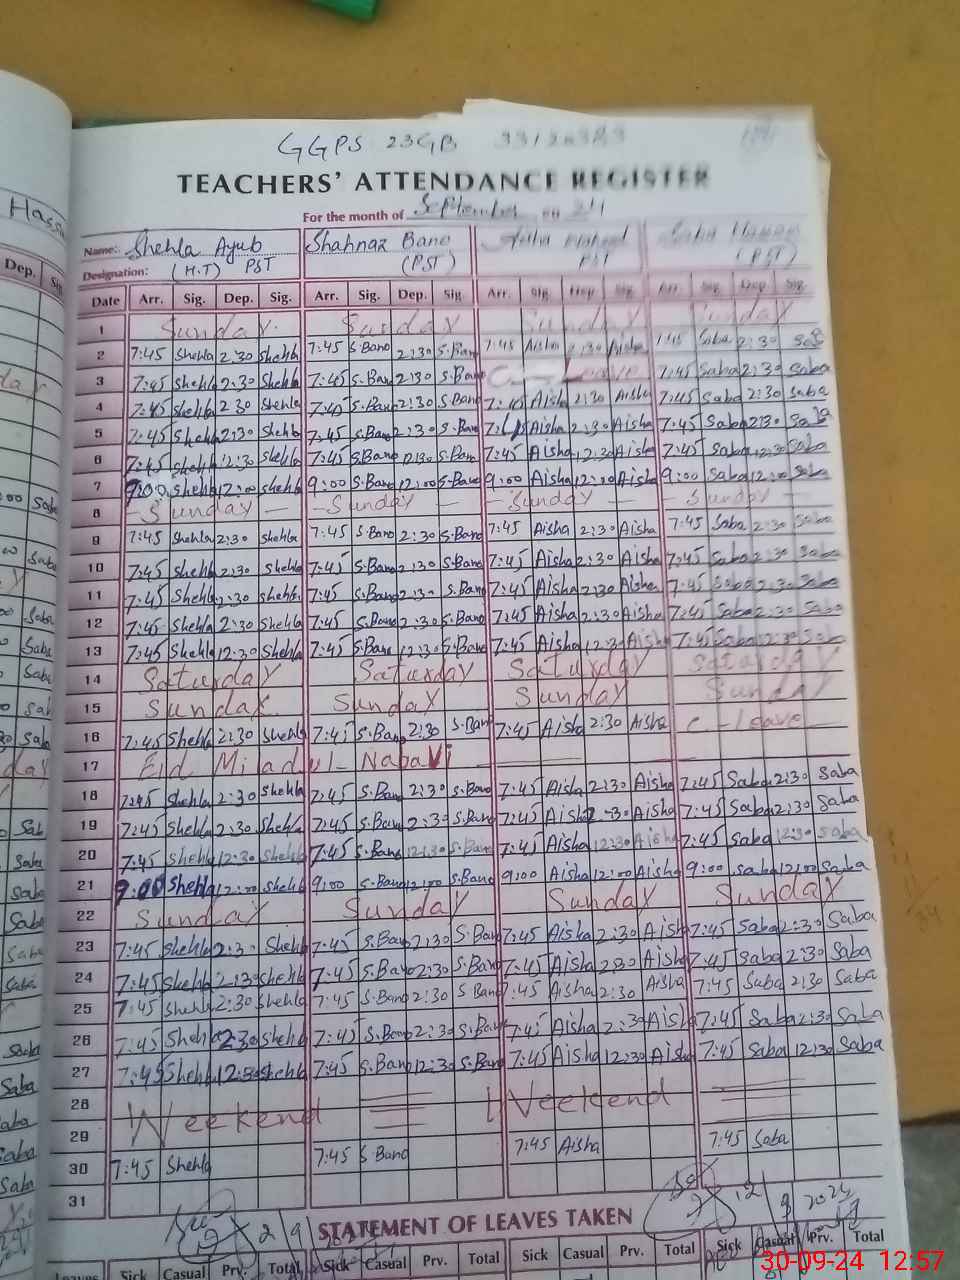 GGPS 23GB 33120383
TEACHERS' ATTENDANCE REGISTER
For the month of September 24
Name: Shehla Ayub Shahnaz Bano Saba
Designation: (H.T) PST (PST) PST (PST)
Date Arr. Sig. Dep. Sig. Arr. Sig. Dep. Sig. Arr. Sig. Dep. Sig. Arr. Sig. Dep. Sig.
1 Sunday Sunday Sunday Sunday
2 7:45 Shehla 2:30 Shehla 7:45 S.Bano 2:30 S.Bano 7:45 Aisha 2:30 Aisha 7:45 Saba 2:30 Saba
3 7:45 Shehla 2:30 Shehla 7:45 S.Bano 2:30 S.Bano C - Leave 7:45 Saba 2:30 Saba
4 7:45 Shehla 2:30 Shehla 7:45 S.Bano 2:30 S.Bano 7:45 Aisha 2:30 Aisha 7:45 Saba 2:30 Saba
5 7:45 Shehla 2:30 Shehla 7:45 S.Bano 2:30 S.Bano Aisha 2:30 Aisha 7:45 Saba 2:30 Saba
6 7:45 Shehla 12:30 Shehla 7:45 S.Bano 12:30 S.Bano 7:45 Aisha 12:30 Aisha 7:45 Saba 12:30 Saba
7 9:00 Shehla 12:00 Shehla 9:00 S.Bano 12:00 S.Bano 9:00 Aisha 12:00 Aisha 9:00 Saba 12:00 Saba
8 - Sunday - - Sunday - - Sunday - - Sunday -
9 7:45 Shehla 2:30 Shehla 7:45 S.Bano 2:30 S.Bano 7:45 Aisha 2:30 Aisha 7:45 Saba 2:30 Saba
10 7:45 Shehla 2:30 Shehla 7:45 S.Bano 2:30 S.Bano 7:45 Aisha 2:30 Aisha 7:45 Saba 2:30 Saba
11 7:45 Shehla 2:30 Shehla 7:45 S.Bano 2:30 S.Bano 7:45 Aisha 2:30 Aisha 7:45 Saba 2:30 Saba
12 7:45 Shehla 2:30 Shehla 7:45 S.Bano 2:30 S.Bano 7:45 Aisha 2:30 Aisha 7:45 Saba 2:30 Saba
13 7:45 Shehla 12:30 Shehla 7:45 S.Bano 12:30 S.Bano 7:45 Aisha 12:30 Aisha 7:45 Saba 12:30 Saba
14 Saturday Saturday Saturday Saturday
15 Sunday Sunday Sunday Sunday
16 7:45 Shehla 2:30 Shehla 7:45 S.Bano 2:30 S.Bano 7:45 Aisha 2:30 Aisha C - Leave
17 Eid Milad ul-Nabavi
18 7:45 Shehla 2:30 Shehla 7:45 S.Bano 2:30 S.Bano 7:45 Aisha 2:30 Aisha 7:45 Saba 2:30 Saba
19 7:45 Shehla 2:30 Shehla 7:45 S.Bano 2:30 S.Bano 7:45 Aisha 2:30 Aisha 7:45 Saba 2:30 Saba
20 7:45 Shehla 12:30 Shehla 7:45 S.Bano 12:30 S.Bano 7:45 Aisha 12:30 Aisha 7:45 Saba 12:30 Saba
21 9:00 Shehla 12:00 Shehla 9:00 S.Bano 12:00 S.Bano 9:00 Aisha 12:00 Aisha 9:00 Saba 12:00 Saba
22 Sunday Sunday Sunday Sunday
23 7:45 Shehla 2:30 Shehla 7:45 S.Bano 2:30 S.Bano 7:45 Aisha 2:30 Aisha 7:45 Saba 2:30 Saba
24 7:45 Shehla 2:30 Shehla 7:45 S.Bano 2:30 S.Bano 7:45 Aisha 2:30 Aisha 7:45 Saba 2:30 Saba
25 7:45 Shehla 2:30 Shehla 7:45 S.Bano 2:30 S Bano 7:45 Aisha 2:30 Aisha 7:45 Saba 2:30 Saba
26 7:45 Shehla 2:30 Shehla 7:45 S.Bano 2:30 S.Bano 7:45 Aisha 2:30 Aisha 7:45 Saba 2:30 Saba
27 7:45 Shehla 12:30 Shehla 7:45 S.Bano 12:30 S.Bano 7:45 Aisha 12:30 Aisha 7:45 Saba 12:30 Saba
28 Weekend Weekend
29
30 7:45 Shehla 7:45 S Bano 7:45 Aisha 7:45 Saba
31
STATEMENT OF LEAVES TAKEN
Leaves Sick Casual Prv. Total Sick Casual Prv. Total Sick Casual Prv. Total Sick Casual Prv. Total
30-09-24 12:57